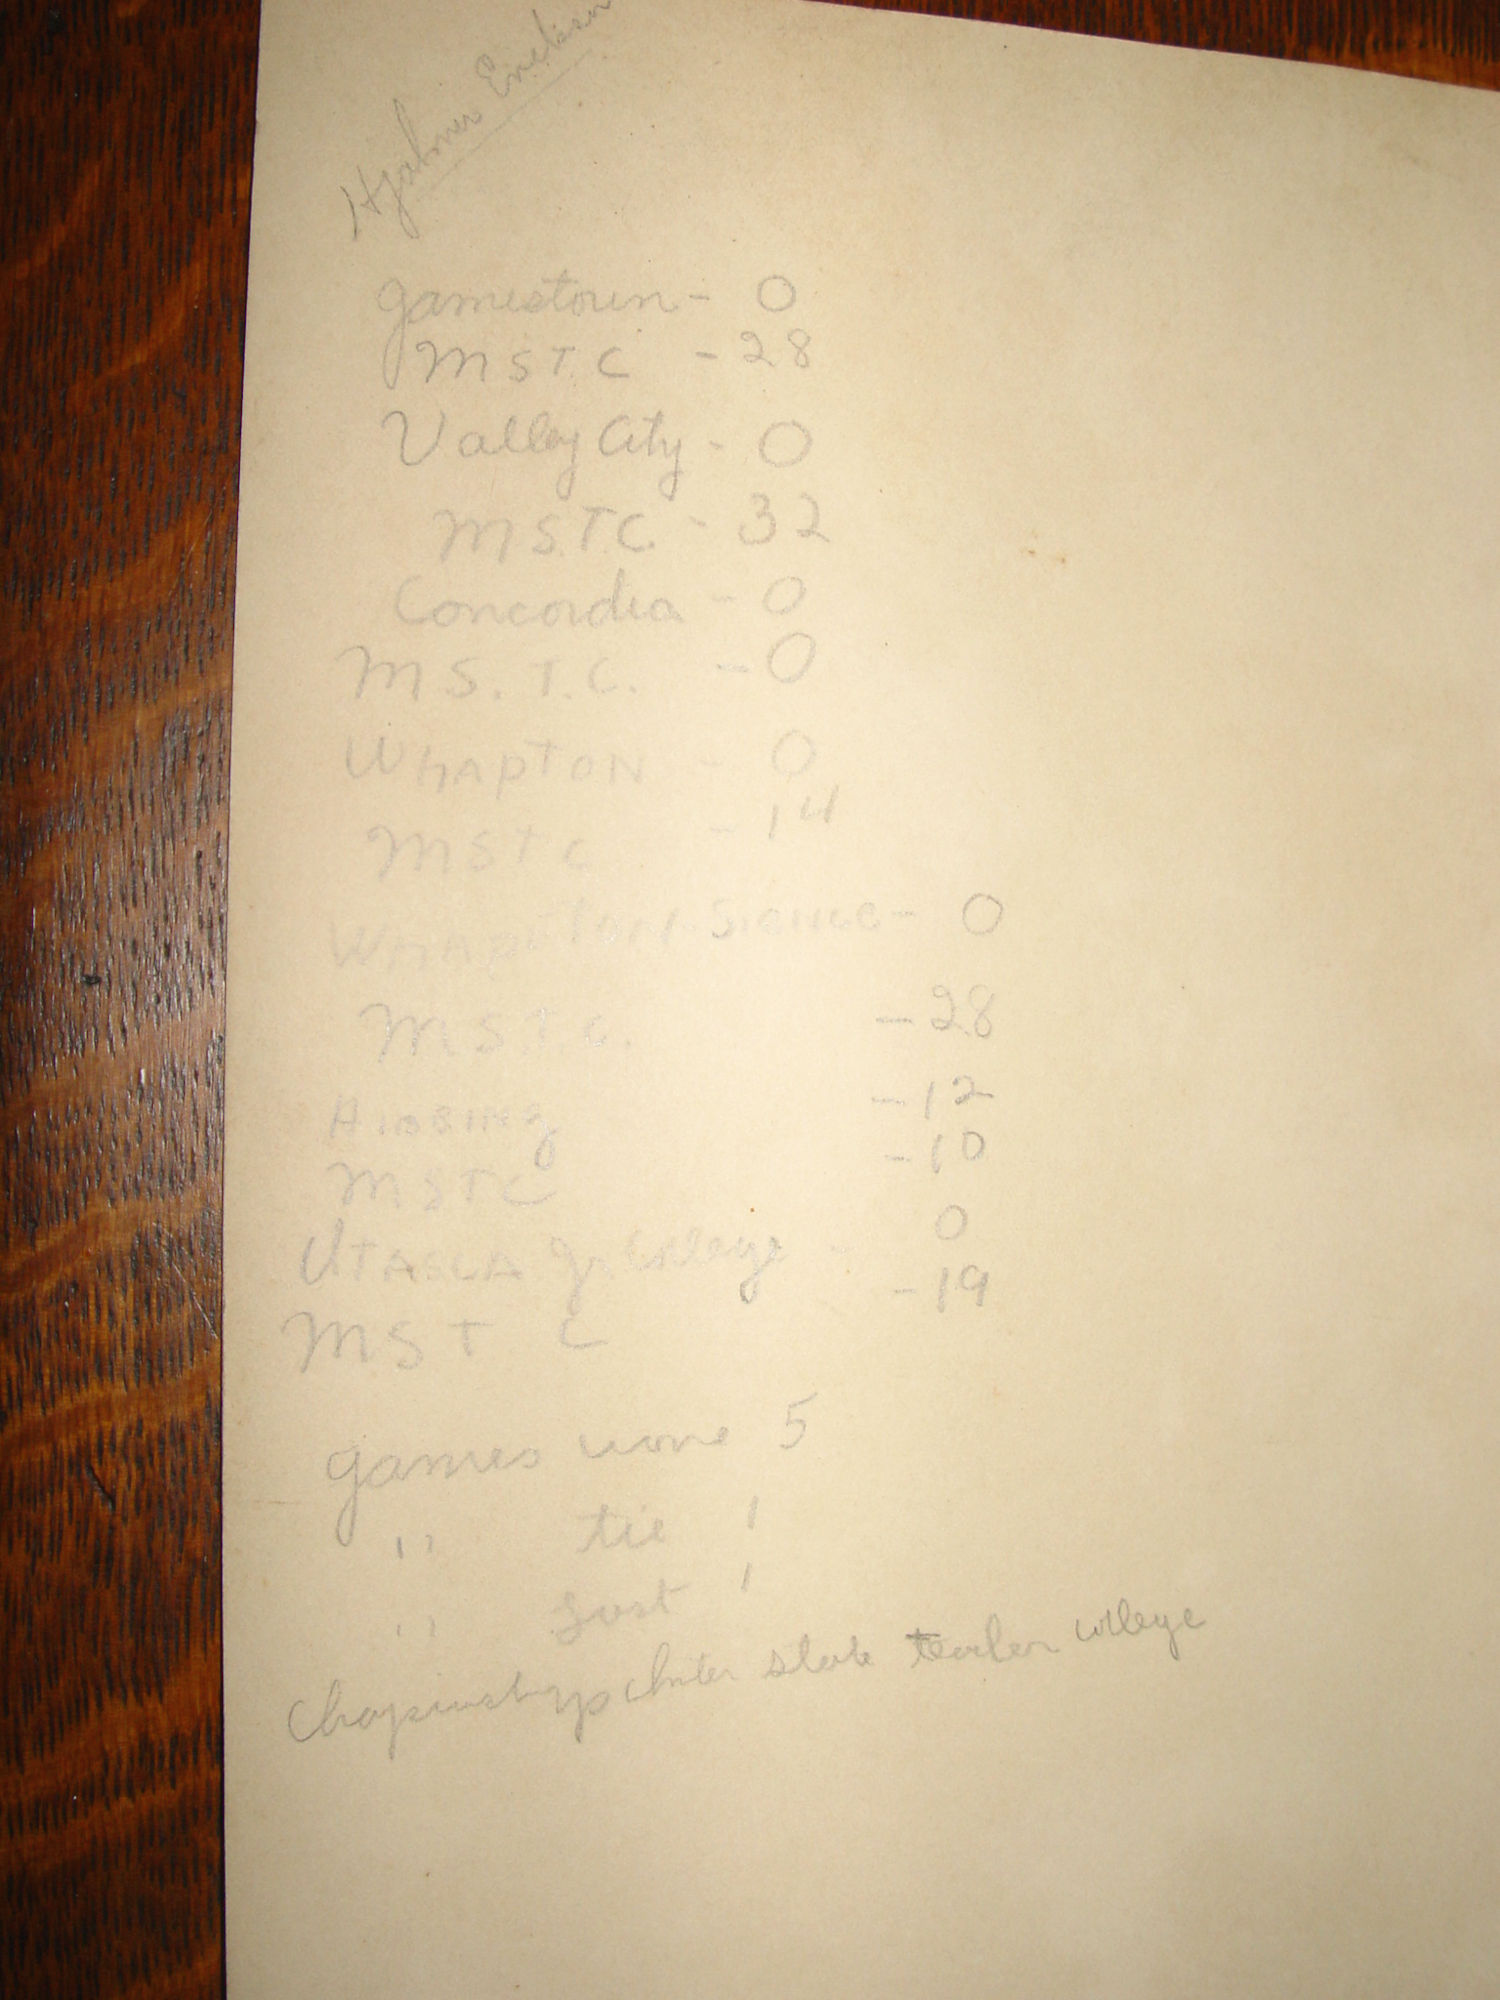 Hjalmer Erickson
Jamestown - 0
MSTC - 28
Valley City - 0
M.S.T.C. - 32
Concordia - 0
M.S.T.C. - 0
WhAPTON - 0
MSTC - 14
Sience - 0
M.S.T.C. - 28
HIBBINg - 12
MSTC - 10
UTASCA Jr College - 0
MSTC - 19
games wone 5
" tie 1
" Lost 1
state teacher college